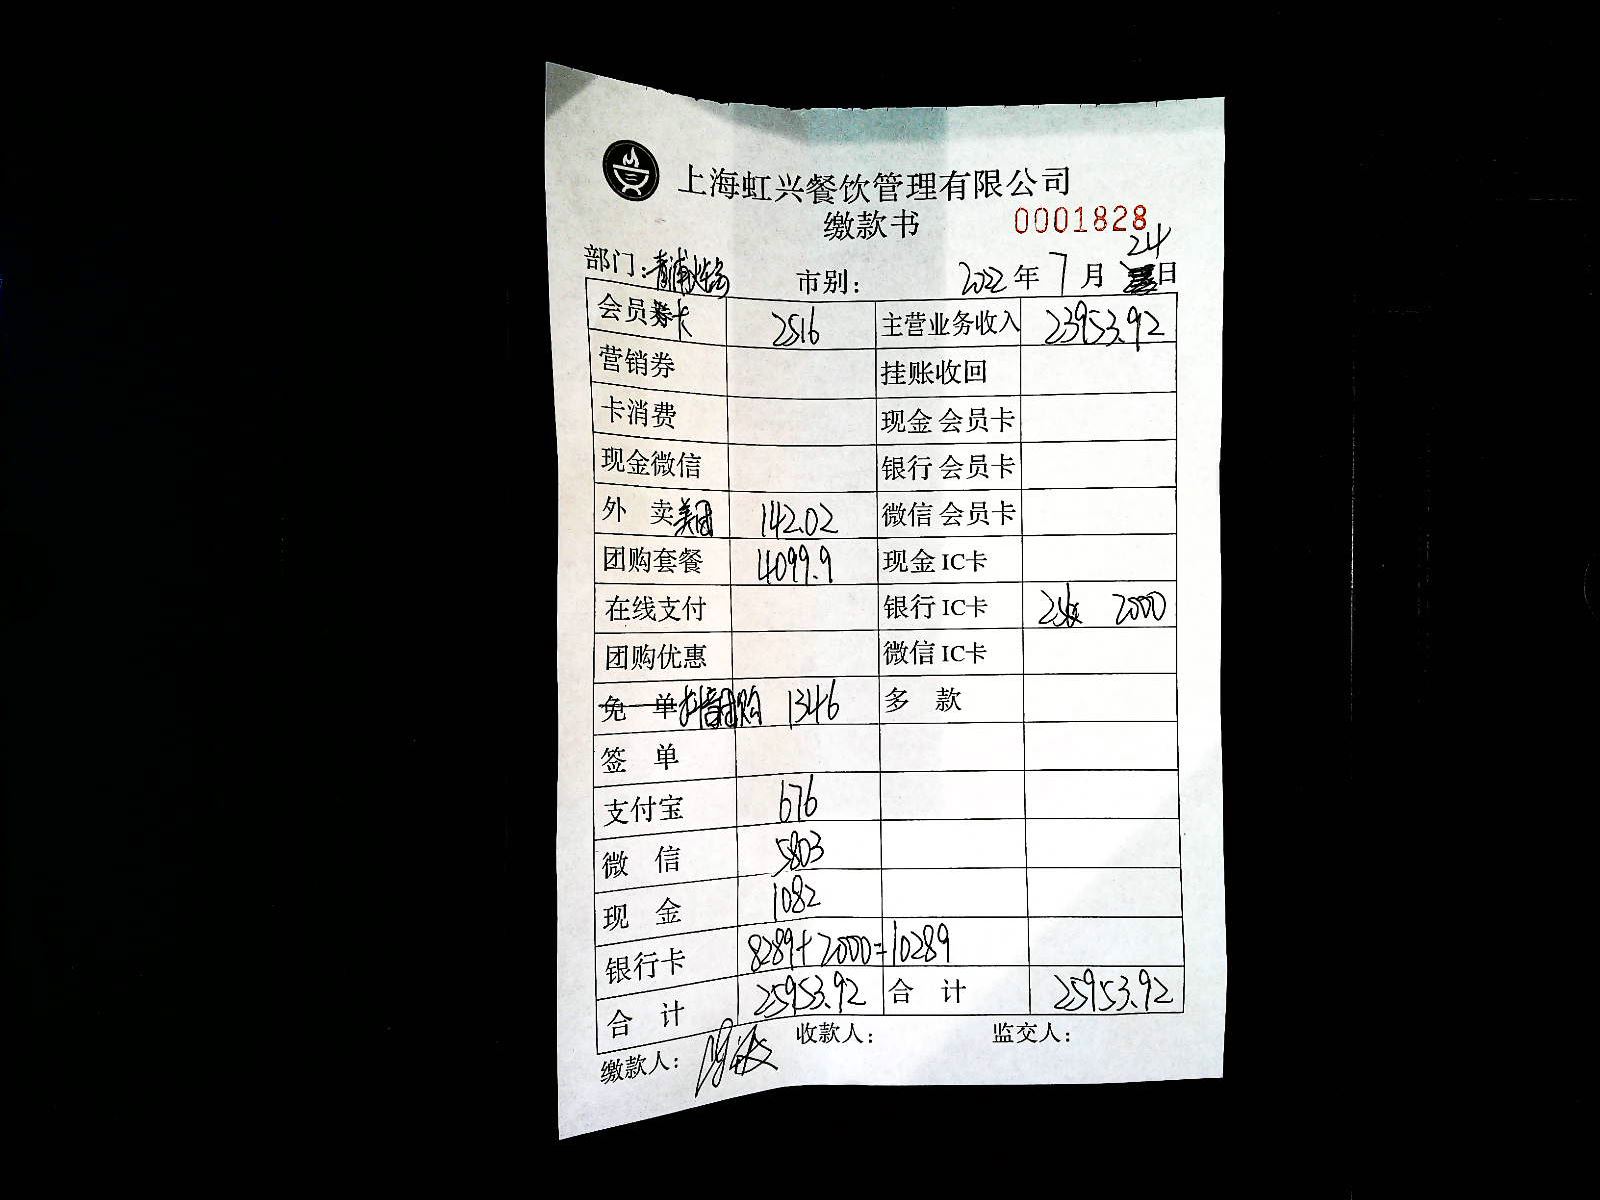 上海虹兴餐饮管理有限公司
缴款书 0001828
部门: 青浦 市别: 2022 年 7 月 24 日
会员卡 2516 主营业务收入 23953.92
营销券 挂账收回
卡消费 现金 会员卡
现金微信 银行 会员卡
外 卖 美团 142.02 微信 会员卡
团购套餐 4099.9 现金 IC卡
在线支付 银行 IC卡 2000
团购优惠 微信 IC卡
免 单 抖音团购 1346 多 款
签 单
支付宝 676
微 信 5803
现 金 1082
银行卡 8289+2000=10289
合 计 25953.92 合 计 25953.92
缴款人: 收款人: 监交人: